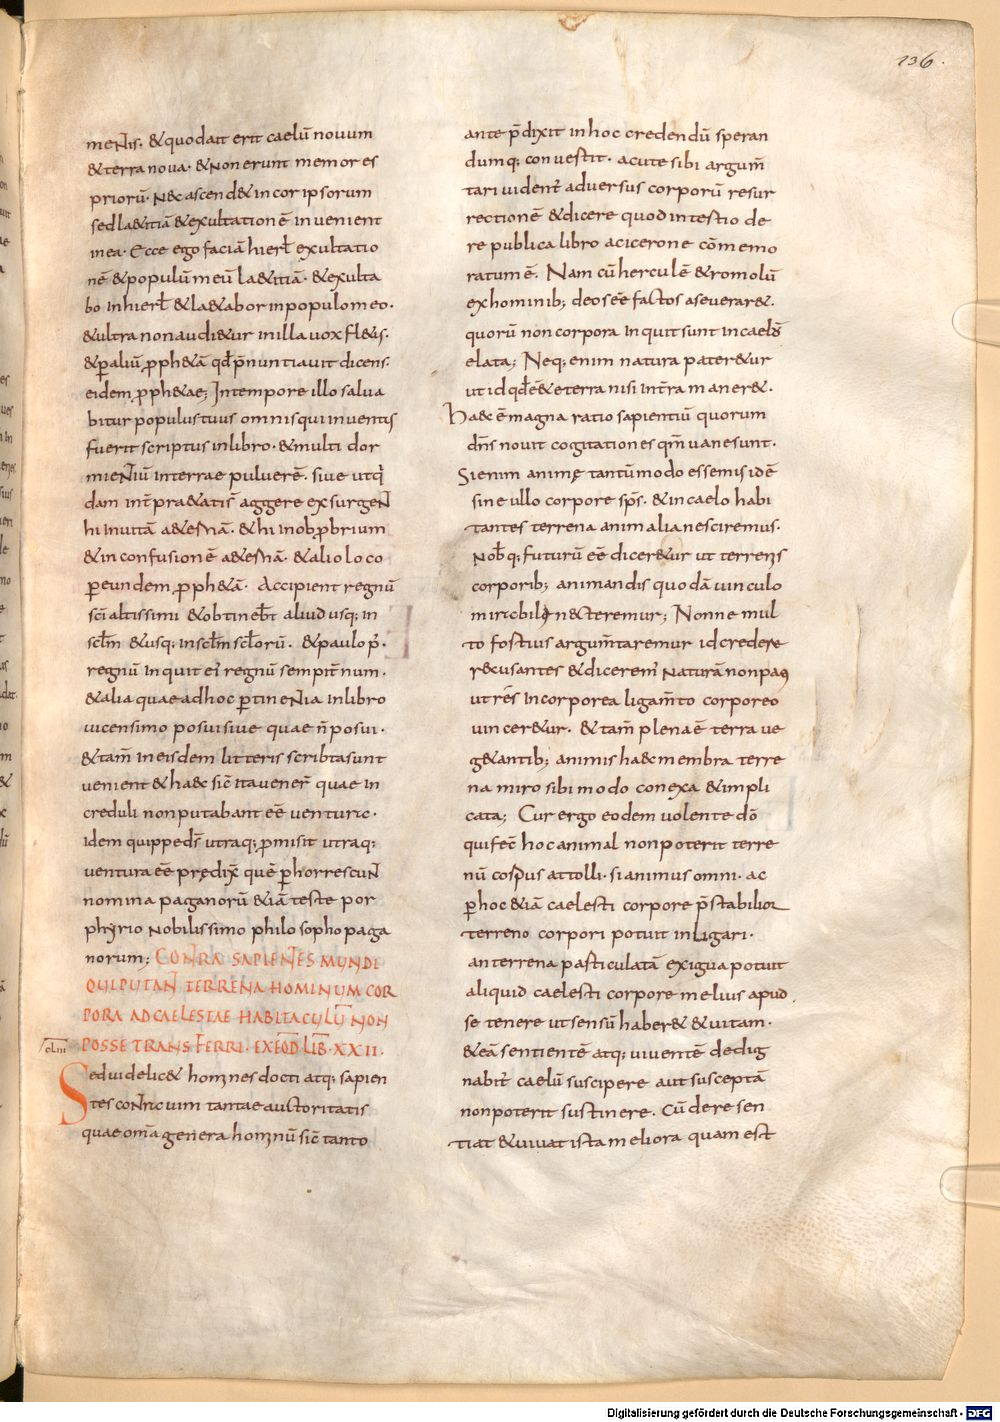 136.
meNtis. & quod ait erit caelū novum
& terra nova. & Non erunt memores
priorū. Nec ascend& in cor ipsorum
sed lætitiā & exultationē invenient
in ea. Ecce ego faciā hierl̄ exultatio
nē & populū meū lætitiā. & exulta
bo in hierl̄ & lætabor in populo meo.
& ultra non audietur in illa vox fl&us.
& p̄ aliū p̄ph&ā qd̄ p̄nuntiavit dicens.
eidem p̄ph&ae; In tempore illo salva
bitur populus tuus omnis qui inventus
fuerit scriptus in libro. & multi dor
mieNtiū in terrae pulverē. sive ut q̇
dam int̄pra&atis aggere exsurgeNt
hi in vitā a&ernā. & hi in obp̄brium
& in confusionē a&ernā. & alio loco
p̄ eundem p̄ph&ā. Accipient regnū
sc̄i altissimi & obtineb̄t aliud usq; in
scl̄m & usq; in scl̄m scl̄orū. & paulo p̄.
regnū inquit ei' regnū sempit̄num.
& alia quae ad hoc p̄tineNtia in libro
vicensimo posui sive quae n̄ posui.
& tam̄ in eisdem litteris scribta sunt
venient & haec sic̄ ita vener̄ quae in
creduli non putabant eē ventura.
idem quippe ds̄ utraq; p̄misit utraq;
ventura eē prędix̄ quē p̄horrescuNt
nomina paganorū &iā teste por
phyrio nobilissimo philosopho paga
norum; CONTRA SAPIENTES MUNDI
QUI PUTANT TERRENA HOMINUM COR
PORA AD CAELESTAE HABITACULŪ NON
POSSE TRANSFERRI. EX EOD̄ LIB̄. XXII.
clııı
Sed videlic& homines docti atq; sapien
tes contra vim tantae auctoritatis
quae om̄a genera hominū sic̄ tanto
ante p̄dixit in hoc credendū speran
dumq; convestit. acute sibi argum̄
tari vident̄ adversus corporū resur
rectionē & dicere quod in testio de
re publica libro a cicerone cōmemo
ratum ē. Nam cū herculē & romolū
ex hominib; deos eē factos aseverar&.
quorū non corpora inquit sunt in caelū
elata; Neq; enim natura pater&ur
ut id qd̄ eē& e terra nisi in t̄ra maner&.
Haec ē magna ratio sapientiū quorum
dn̄s novit cogitationes qm̄ vanae sunt.
Si enim animę tantūmodo essemus idē
sine ullo corpore sps̄. & in caelo habi
tantes terrena animalia nesciremus.
Nob̄q; futurū eē dicer&ur ut terrenis
corporib; animandis quodā vinculo
mirabili necteremur; Nonne mul
to fostius argum̄taremur id credere
recusantes & dicerem' naturā non pati
ut rēs incorporea ligam̄to corporeo
vincer&ur. & tam̄ plena ē terra ve
g&antib; animis haec membra terre
na miro sibi modo conexa & impli
cata; Cur ergo eodem volente dō
qui fec̄ hoc animal non poterit terre
nū cospus attolli. si animus omni. ac
p̄ hoc &iā caelesti corpore p̄stabilior
terreno corpori potuit inligari.
an terrena pasticulatā exigua potuit
aliquid caelesti corpore melius apud
se tenere ut sensū haber& & vitam.
& eā sentientē atq; viventē dedig
nabit̄ caelū suscipere aut susceptā
non poterit sustinere. Cū de re sen
tiat & vivat ista meliora quam est
Digitalisierung gefördert durch die Deutsche Forschungsgemeinschaft - DFG